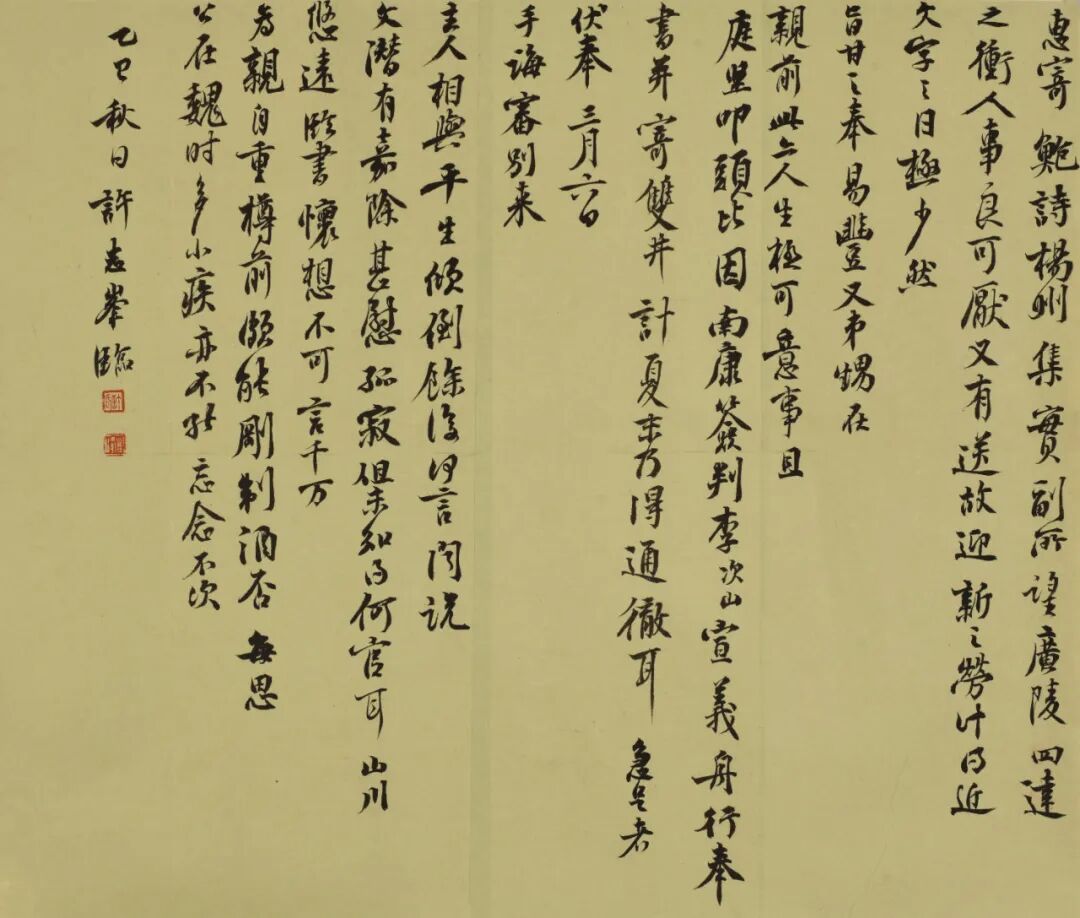 惠寄鮑詩楊州集實副所望廣陵四達
之衝人事良可厭又有送故迎新之勞計得近
文字之日極少然
旨甘之奉易豐又弟甥在
親前此亦人生極可意事且
庭堅叩頭比因南康簽判李次山宣義舟行奉
書并寄雙井計夏末乃得通徹耳急足者
伏奉三月六日
手誨審別來
主人相與平生傾倒餘復何言閒說
文潛有嘉除甚慰孤寂但未知得何官耳山川
悠遠臨書懷想不可言千万
為親自重樽前頗能剛制酒否每思
公在魏时多小疾亦不能忘念不次
乙巳秋日許志峯臨